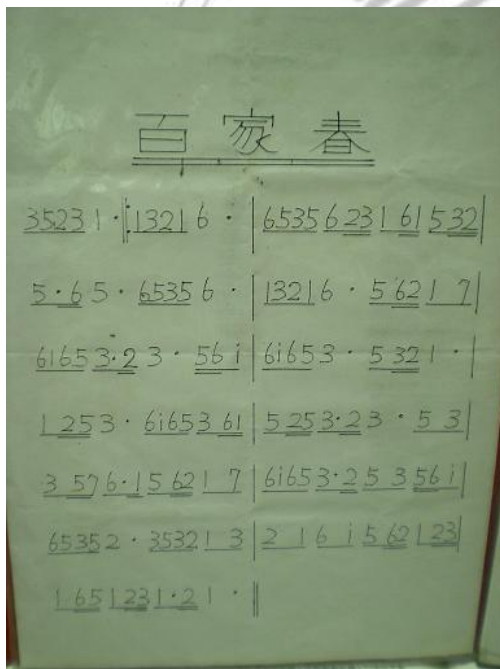 百家春
35231·‖:13216·|6535623161532|
5·65·65356·|13216·56217|
61653·23·56i|6i653·5321·|
1253·6i65361|5253·23·53|
3576·156217|6i653·25356i|
65352·353213|216i562123|
1651231·21·‖